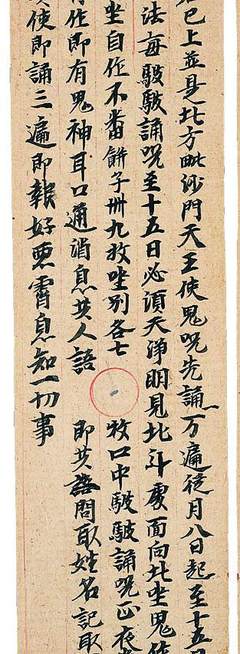 已上並是北方毗沙門天王使鬼咒先誦一万遍從月八日起至十五
法每皺皺誦咒至十五日必須天淨明見北斗處面向北坐鬼
坐自作不番餅子卌九枚坐別各七 枚口中皺皺誦咒正夜
作即有鬼神耳口通消息共人語 即共語問取姓名記取
使即誦三遍即報好惡霄息知一切事